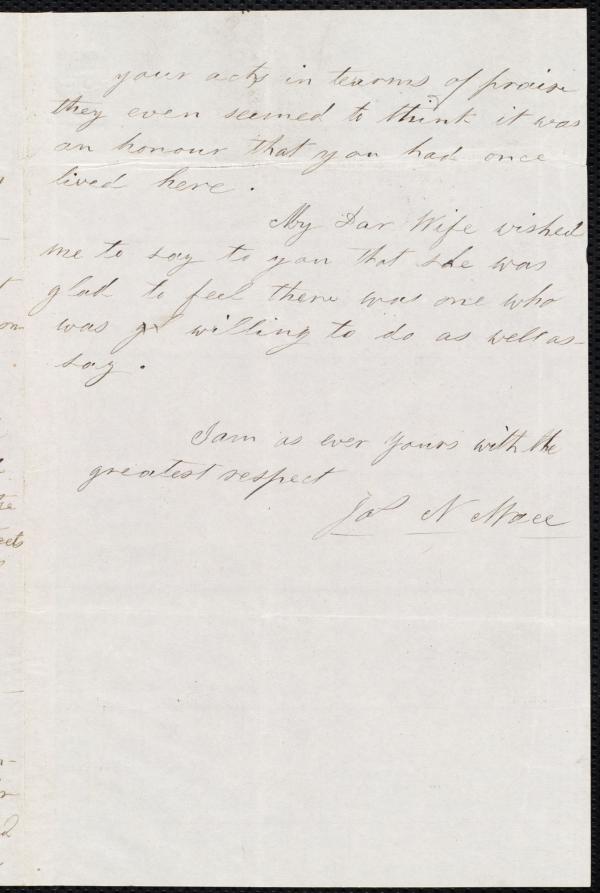 your acts in tearms of praise
they even seemed to think it was
an honour that you had once
lived here.
My Dar Wife wished
me to say to you that she was
glad to feel there was one who
was willing to do as well as
say.
I am as ever yours with the
greatest respect
Jas N Mace